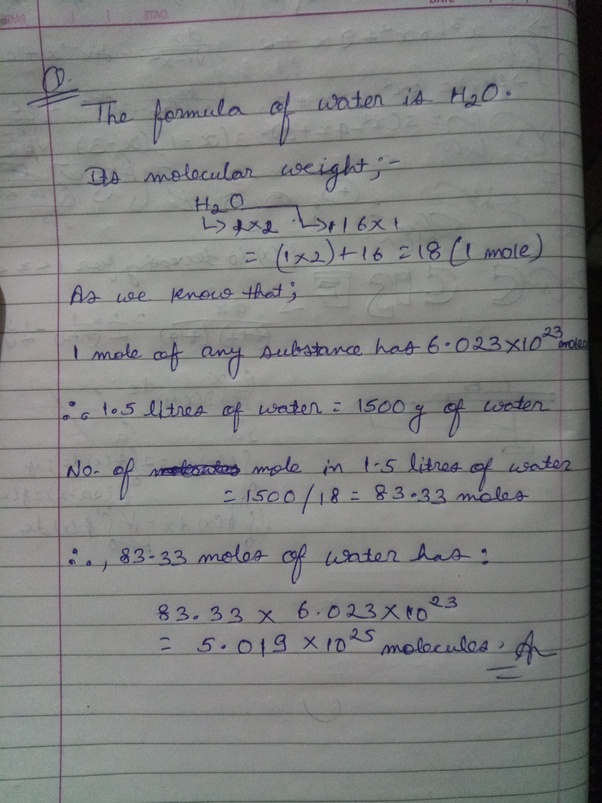 DATE
Q.
The formula of water is H₂O.
Its molecular weight;-
H₂O
↳1×2 ↳16×1
= (1×2)+16 = 18 (1 mole)
As we know that;
1 mole of any substance has 6.023×10²³ molec
∴ 1.5 litres of water = 1500 g of water
No. of mole in 1.5 litres of water
= 1500/18 = 83.33 moles
∴, 83.33 moles of water has:
83.33 × 6.023×10²³
= 5.019 ×10²⁵ molecules.